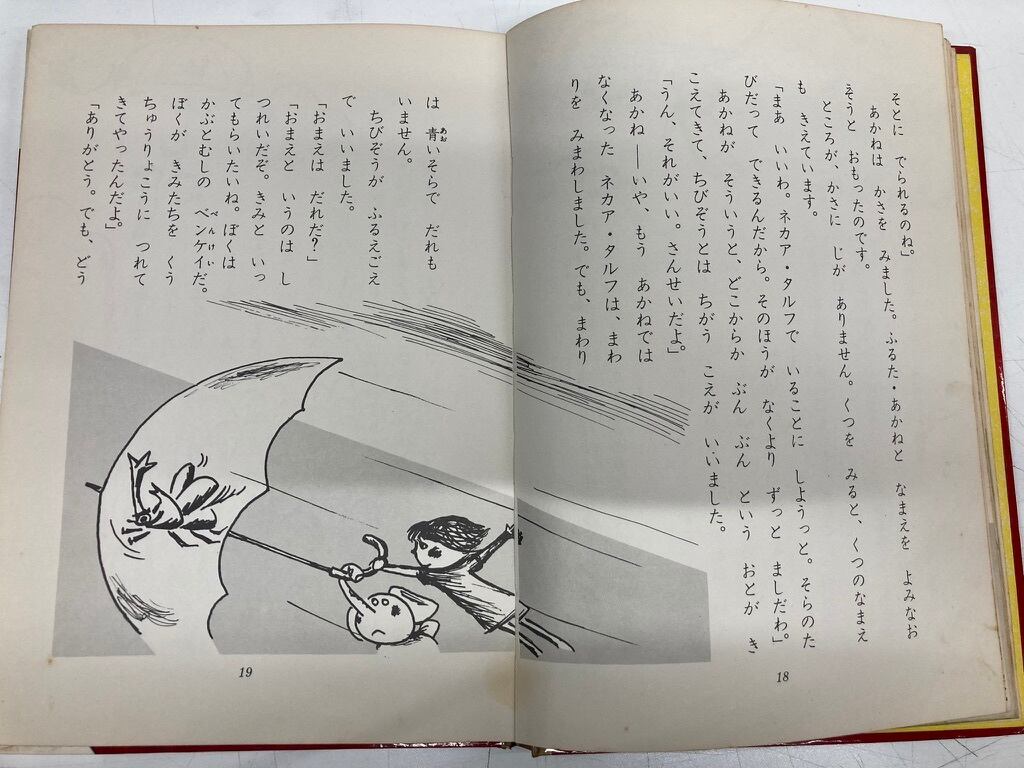 そとに でられるのね。
あかねは かさを みました。ふるた・あかねと なまえを よみなお
そうと おもったのです。
ところが、かさに じが ありません。くつを みると、くつのなまえ
も きえています。
「まあ いいわ。ネカア・タルフで いることに しようっと。そらのた
びだって できるんだから。そのほうが なくより ずっと ましだわ。」
あかねが そういうと、どこからか ぶん ぶん という おとが き
こえてきて、ちびぞうとは ちがう こえが いいました。
「うん、それがいい。さんせいだよ。」
あかね――いや、もう あかねでは なくなった ネカア・タルフは、まわ
りを みまわしました。でも、まわり
18
は 青いそらで だれも
あお
いません。
ちびぞうが ふるえごえ
で いいました。
「おまえは だれだ?」
「おまえと いうのは し
つれいだぞ。きみと いっ
てもらいたいね。ぼくは
かぶとむしの ベンケイだ。
べんけい
ぼくが きみたちを くう
ちゅうりょこうに つれて
きてやったんだよ。」
「ありがとう。でも、どう
19